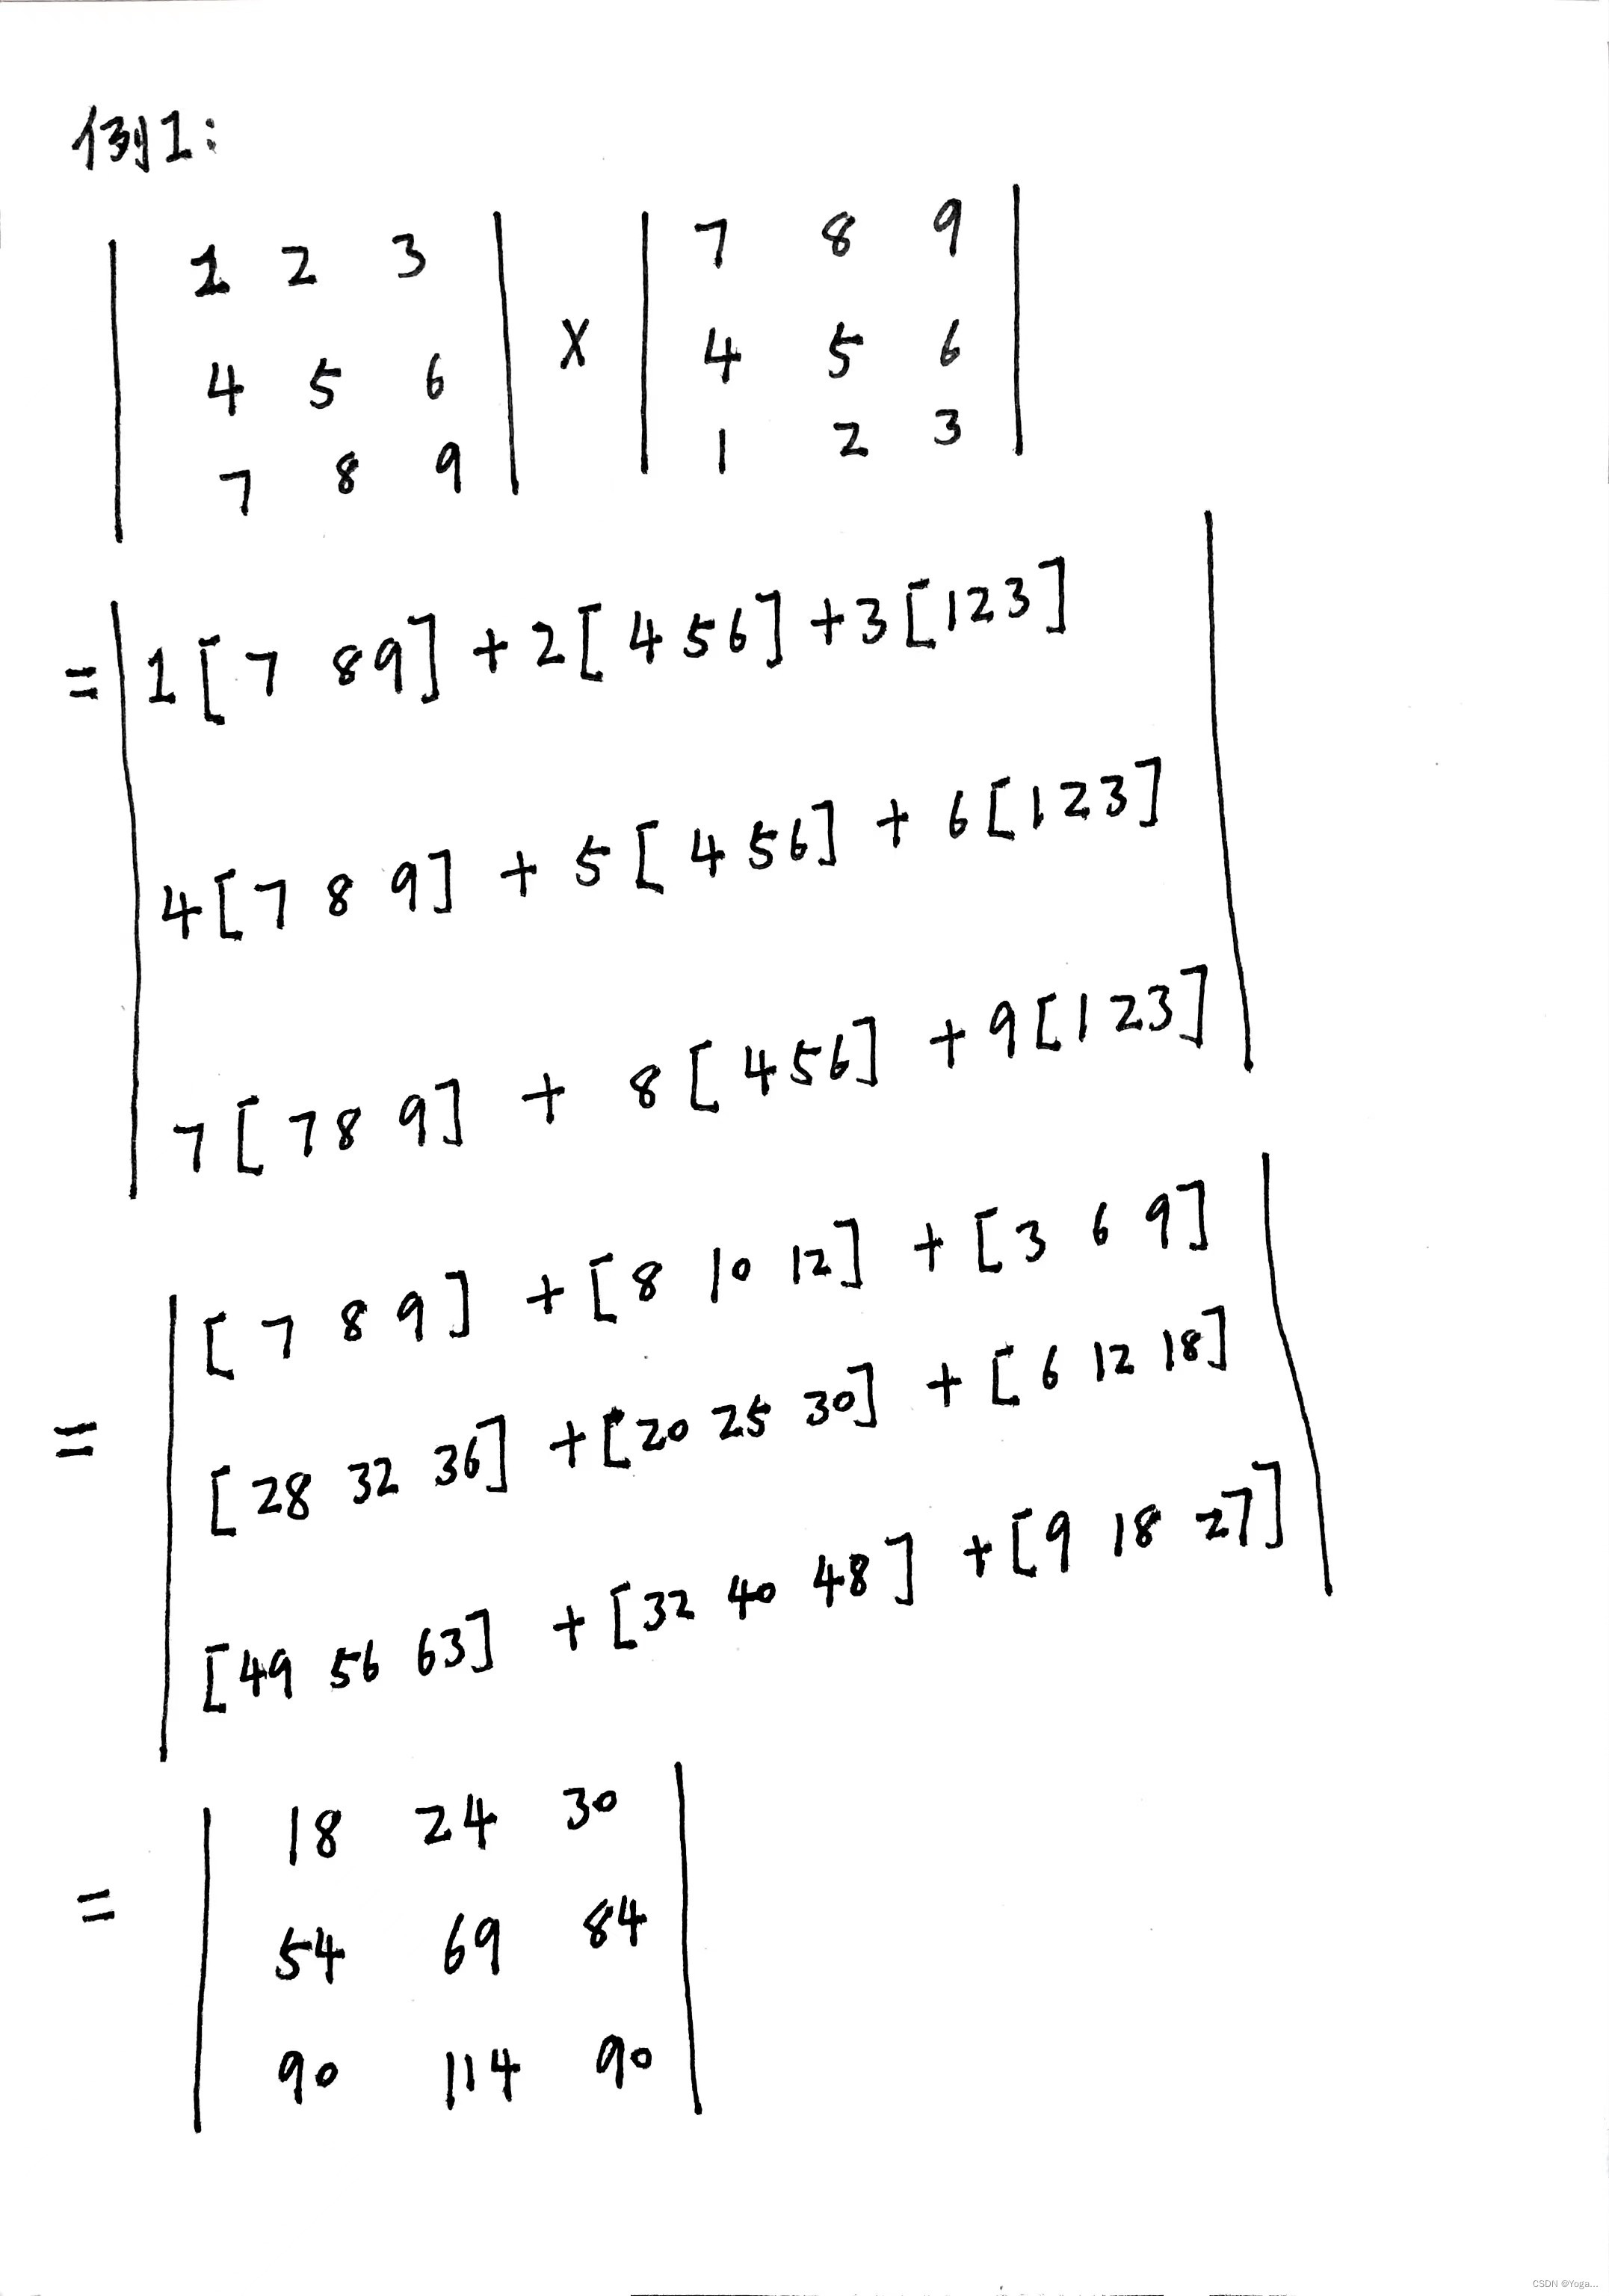 例1:
| 1 2 3 | | 7 8 9 |
| 4 5 6 | X | 4 5 6 |
| 7 8 9 | | 1 2 3 |
= | 1[7 8 9] + 2[4 5 6] + 3[1 2 3] |
| 4[7 8 9] + 5[4 5 6] + 6[1 2 3] |
| 7[7 8 9] + 8[4 5 6] + 9[1 2 3] |
| [7 8 9] + [8 10 12] + [3 6 9] |
= | [28 32 36] + [20 25 30] + [6 12 18] |
| [49 56 63] + [32 40 48] + [9 18 27] |
| 18 24 30 |
= | 54 69 84 |
| 90 114 90 |
CSDN @Yoga...